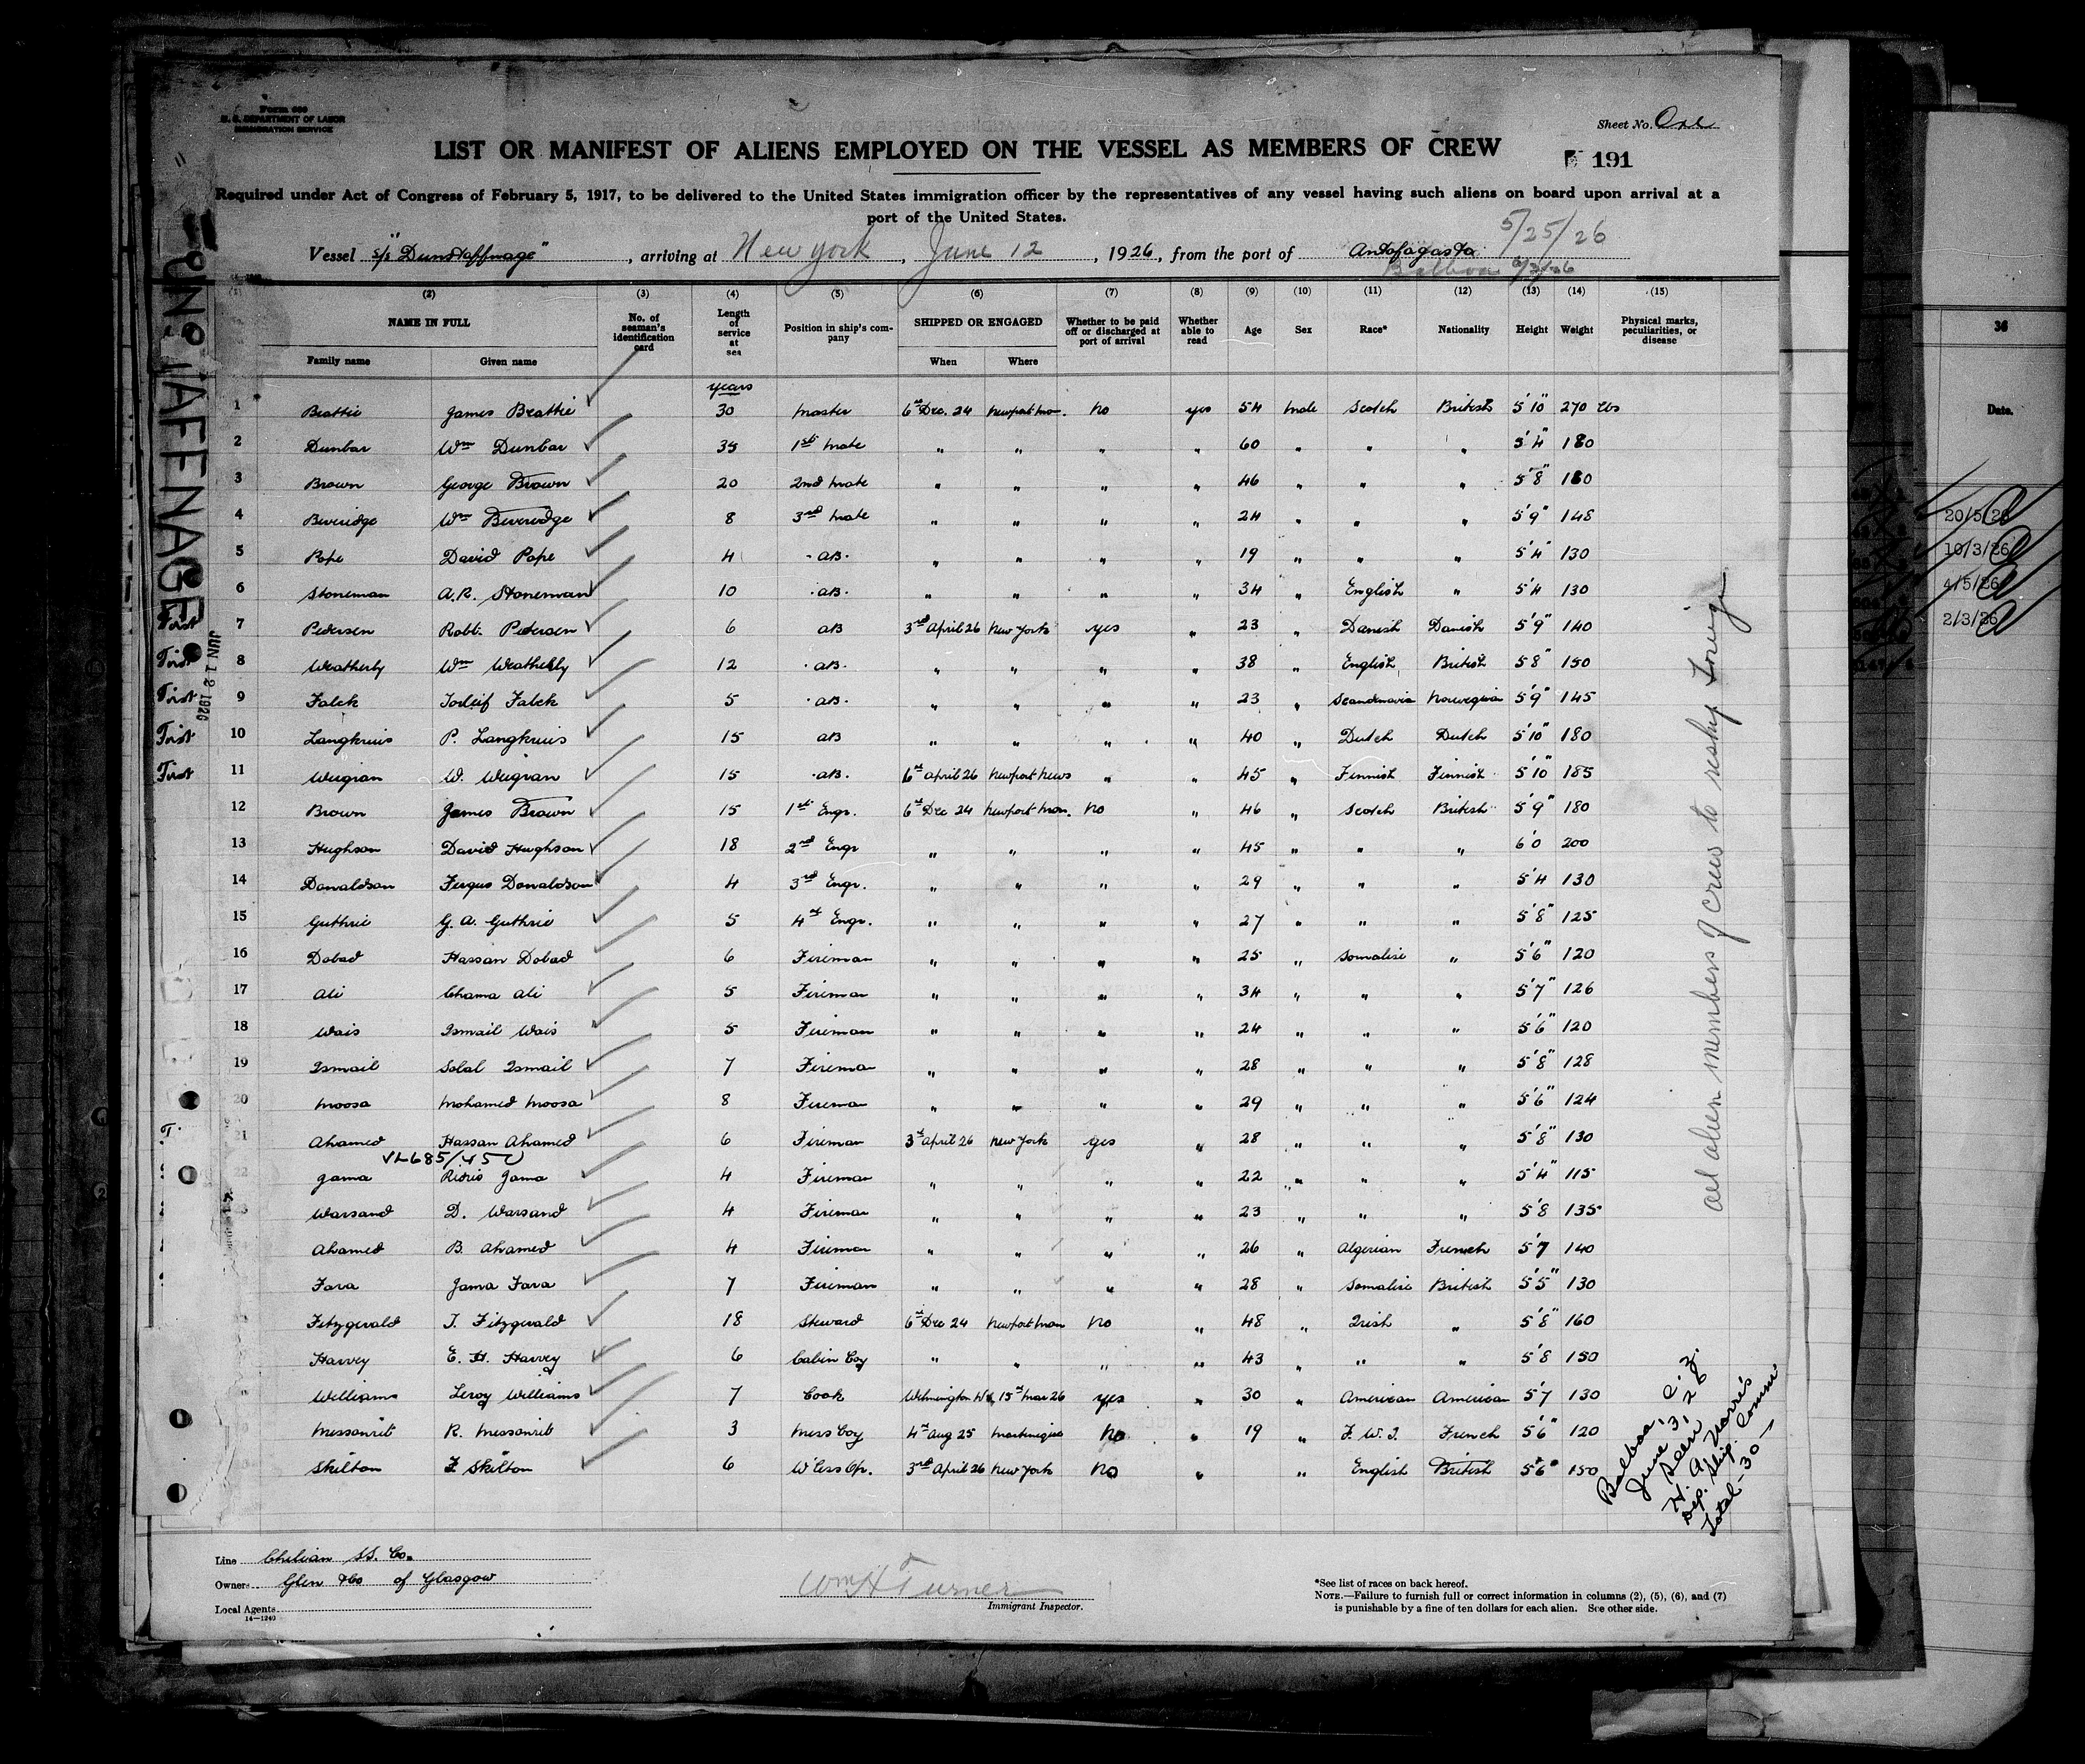 Form 680
U. S. DEPARTMENT OF LABOR
IMMIGRATION SERVICE
Sheet No. One
LIST OR MANIFEST OF ALIENS EMPLOYED ON THE VESSEL AS MEMBERS OF CREW
191
Required under Act of Congress of February 5, 1917, to be delivered to the United States immigration officer by the representatives of any vessel having such aliens on board upon arrival at a
port of the United States.
5/25/26
Vessel s/s "Dunstaffnage", arriving at New York, June 12, 1926, from the port of Antofagasta
Balboa 6/3/26
(1) (2) (3) (4) (5) (6) (7) (8) (9) (10) (11) (12) (13) (14) (15)
NAME IN FULL No. of seaman's identification card Length of service at sea Position in ship's company SHIPPED OR ENGAGED Whether to be paid off or discharged at port of arrival Whether able to read Age Sex Race* Nationality Height Weight Physical marks, peculiarities, or disease
Family name Given name When Where
years
1 Beattie James Beattie 30 Master 6th Dec. 24 Newport Mon. no yes 54 male Scotch British 5'10" 270 lbs
2 Dunbar Wm Dunbar 35 1st Mate " " " " 60 " " " 5'4" 180
3 Brown George Brown 20 2nd Mate " " " " 46 " " " 5'8" 180
4 Beveridge Wm Beveridge 8 3rd Mate " " " " 24 " " " 5'9" 148
5 Pope David Pope 4 AB. " " " " 19 " " " 5'4" 130
6 Stoneman A.R. Stoneman 10 AB. " " " " 34 " English " 5'4 130
First 7 Pedersen Robt. Pedersen 6 AB 3rd April 26 New York yes " 23 " Danish Danish 5'9" 140
First 8 Weatherly Wm Weatherly 12 AB. " " " " 38 " English British 5'8" 150
First 9 Falck Torleif Falck 5 AB. " " " " 23 " Scandinavia Norwegian 5'9" 145
First 10 Langkruis P. Langkruis 15 AB " " " " 40 " Dutch Dutch 5'10" 180
First 11 Weigran W. Weigran 15 AB. 6th April 26 Newport News " " 45 " Finnish Finnish 5'10" 185
12 Brown James Brown 15 1st Engr. 6th Dec 24 Newport Mon. no " 46 " Scotch British 5'9" 180
13 Hughson David Hughson 18 2nd Engr " " " " 45 " " " 6'0 200
14 Donaldson Fergus Donaldson 4 3rd Engr. " " " " 29 " " " 5'4 130
15 Guthrie G. A. Guthrie 5 4th Engr. " " " " 27 " " " 5'8" 125
16 Dobad Hassan Dobad 6 Fireman " " " " 25 " Somalise " 5'6" 120
17 Ali Chama Ali 5 Fireman " " " " 34 " " " 5'7" 126
18 Wais Ismail Wais 5 Fireman " " " " 24 " " " 5'6" 120
19 Ismail Solal Ismail 7 Fireman " " " " 28 " " " 5'8" 128
20 Moosa Mohamed Moosa 8 Fireman " " " " 29 " " " 5'6" 124
21 Ahamed Hassan Ahamed 6 Fireman 3rd April 26 New York yes " 28 " " " 5'8" 130
22 Gama Ridris Gama 4 Fireman " " " " 22 " " " 5'4" 115
Warsand D. Warsand 4 Fireman " " " " 23 " " " 5'8 135
Ahamed B. Ahamed 4 Fireman " " " " 26 " Algerian French 5'7 140
Fara Jama Fara 7 Fireman " " " " 28 " Somalise British 5'5" 130
Fitzgerald T. Fitzgerald 18 Steward 6th Dec 24 Newport Mon no " 48 " Irish " 5'8" 160
Harvey E. H. Harvey 6 Cabin Boy " " " " 43 " " " 5'8 150
Williams Leroy Williams 7 Cook Wilmington 15th Mar 26 yes " 30 " American American 5'7 130
Messanrit R. Messanrit 3 Mess Boy 4th Aug 25 Martinique No " 19 " F. W. I. French 5'6" 120
Skilton F Skilton 6 W'less Op. 3rd April 26 New York No " " English British 5'6" 150
all alien members of crew to reship foreign
Balboa, C. Z.
June 3, 26
Seen
H. A. Norris
Dep. Ship. Comm
Total - 30 -
JUN 12 1926
Line Chilian SS. Co.
Owners Glen & Co of Glasgow
Local Agents
14—1240
Wm H Turner
Immigrant Inspector.
*See list of races on back hereof.
NOTE.—Failure to furnish full or correct information in columns (2), (5), (6), and (7)
is punishable by a fine of ten dollars for each alien. See other side.
36
Date.
20/5/26
10/3/26
4/5/26
2/3/26